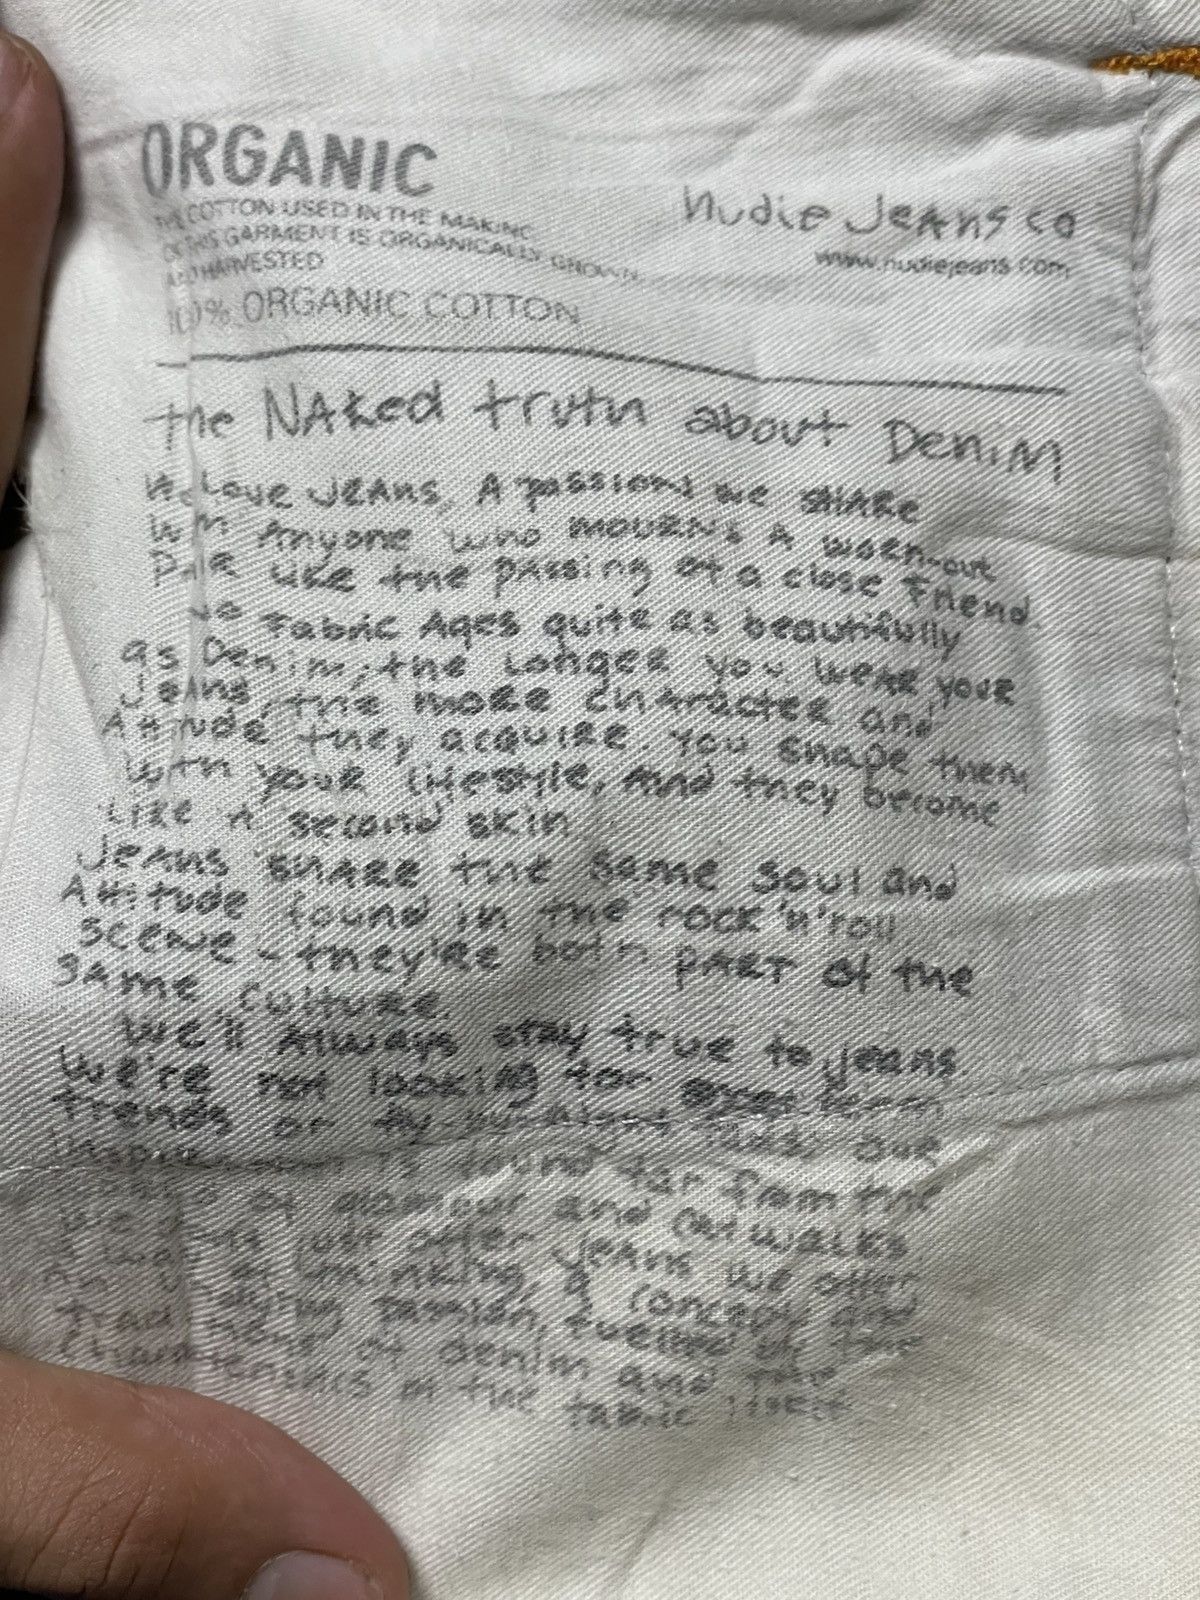 ORGANIC
THE COTTON USED IN THE MAKING
OF THIS GARMENT IS ORGANICALLY GROWN
AND HARVESTED
100% ORGANIC COTTON
nudie Jeans co
www.nudiejeans.com
the Naked truth about Denim
We Love Jeans. A passion we share
with Anyone who mourns A worn-out
Pair like the passing of a close Friend
No Fabric Ages quite as beautifully
as Denim; the Longer you wear your
Jeans, the more character and
Attitude they acquire. You shape them
with your lifestyle, And they become
Like A second skin
Jeans share the same soul and
Attitude found in the rock'n'roll
scene - they're both part of the
same culture.
We'll Always stay true to jeans
We're not looking for
trends or our
is found far from the
of glamour and catwalks
We just offer jeans we offer
a way of thinking, a concept and
an passion, fuelled by the
traditions of denim and the
characteristics in the fabric itself